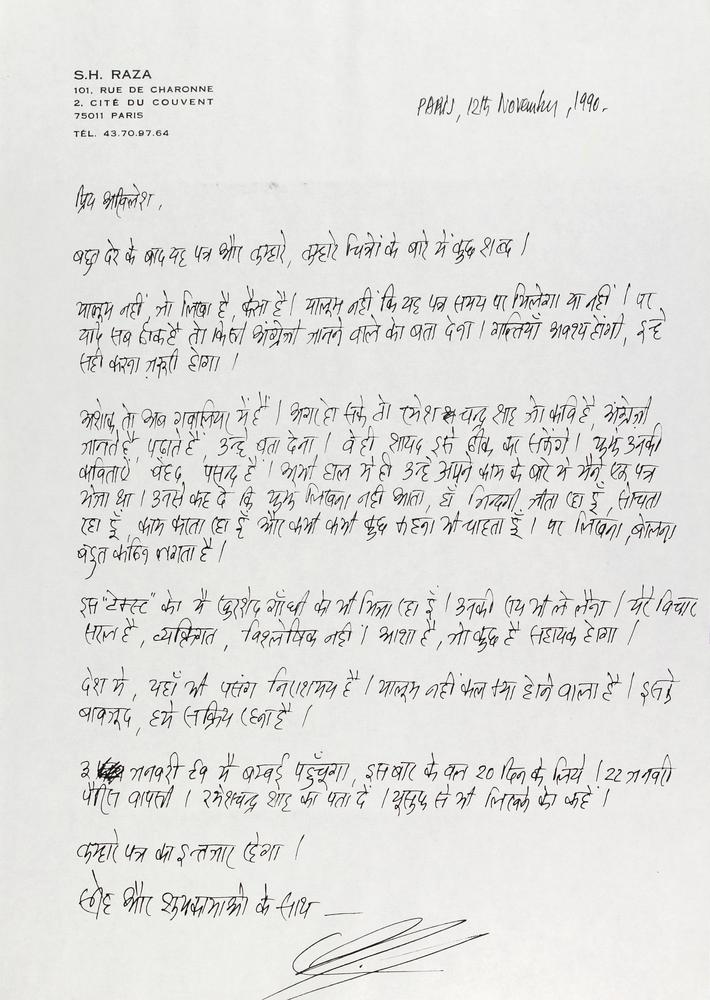 S.H. RAZA
101, RUE DE CHARONNE
2, CITÉ DU COUVENT
75011 PARIS
TÉL. 43.70.97.64
PARIS, 12th November, 1990.
प्रिय अखिलेश,
बहुत देर के बाद यह पत्र और तुम्हारे, तुम्हारे चित्रों के बारे में कुछ शब्द।
मालूम नहीं, जो लिखा है, कैसा है। मालूम नहीं कि यह पत्र समय पर मिलेगा या नहीं। पर
यदि सब ठीक है तो किसी अंग्रेजी जानने वाले को बता देना। गल्तियाँ अवश्य होंगी, इन्हे
सही करना ज़रूरी होगा।
अशोक तो अब गवालियर में हैं। अगर हो सके तो रमेश चन्द्र शाह जो कवि है, अंग्रेजी
जानते है, पढ़ाते है, उन्हे बता देना। वे ही शायद इसे ठीक कर सकेंगे। मुझे उनकी
कविताऐं बेहद पसन्द हैं। अभी हाल में ही उन्हे अपने काम के बारे मे मैने एक पत्र
भेजा था। उनसे कह दे कि मुझे लिखना नहीं आता, हाँ जिन्दगी जीता रहा हूँ, सोचता
रहा हूँ, काम करता रहा हूँ और कभी कभी कुछ कहना भी चाहता हूँ। पर लिखना, बोलना
बहुत कठिन लगता है।
इस "टेक्स्ट" को मै खुरशेद गाँधी को भी भिजा रहा हूँ। उनकी राय भी ले लेना। मेरे विचार
सरल है, व्यक्तिगत, विश्लेषिक नहीं। आशा है, जो कुछ है सहायक होगा।
देश मे, यहाँ भी प्रसंग निराशमय है। मालूम नहीं कल क्या होने वाला है। इसके
बावजूद, हमे सक्रिय रहना है।
3 जनवरी ९१ मै बम्बई पहुँचूगा, इस बार केवल 20 दिन के लिये। 22 जनवरी
पैरिस वापसी। रमेशचन्द्र शाह का पता दें। यूसुफ से भी लिखने को कहें।
तुम्हारे पत्र का इन्तजार रहेगा।
स्नेह और शुभकामाओं के साथ —